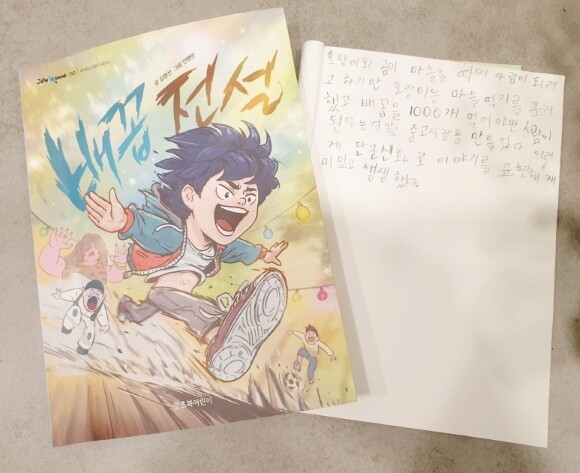 배꼽 전설
글 김명선 그림 안병현
호랑이와 곰이 마늘을 먹어 사람이 되려
고 하지만 호랑이는 마늘 먹기를 포기
했고 배꼽을 1000개 먹어야만 사람이
된다는걸 알 중고사람을 만들었다 이렇
게 단군신화 로 이야기를 표현해 재
미있고 생생 했다